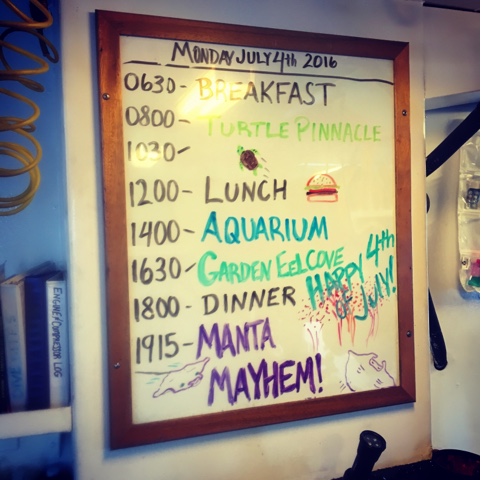 MONDAY JULY 4th 2016
0630- BREAKFAST
0800- TURTLE PINNACLE
1030-
1200- LUNCH
1400- AQUARIUM
1630- GARDEN EEL COVE
1800- DINNER
HAPPY 4th
OF JULY!
1915- MANTA
MAYHEM!
ENGINE/COMPRESSOR LOG